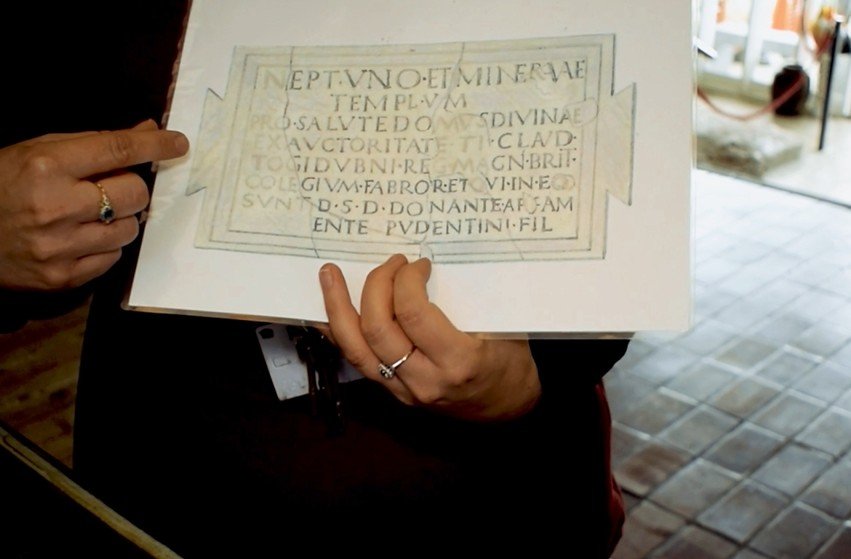 NEPTVNO·ET·MINERVAE
TEMPLVM
PRO·SALVTE·DOMVS·DIVINAE
EX·AVCTORITATE·TI·CLAVD·
TOGIDVBNI·RE·G·MAGN·BRIT·
COLEGIVM·FABROR·ET·QVI·IN·EO
SVNT·D·S·D·DONANTE·AREAM
ENTE PVDENTINI·FIL